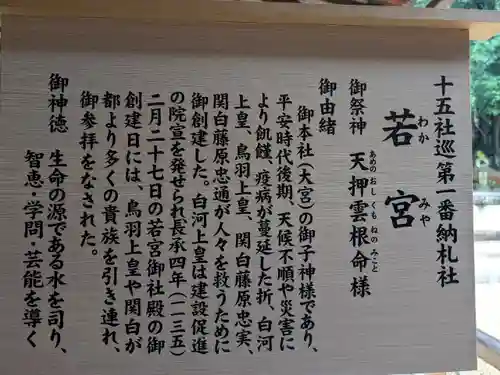 十五社巡第一番納札社
若宮
わか
みや
御祭神 天押雲根命様
あめのおしくもねのみこと
御由緒
御本社(大宮)の御子神様であり、
平安時代後期、天候不順や災害に
より飢饉、疫病が蔓延した折、白河
上皇、鳥羽上皇、関白藤原忠実、
関白藤原忠通が人々を救うために
御創建した。白河上皇は建設促進
の院宣を発せられ長承四年(一一三五)
二月二十七日の若宮御社殿の御
創建日には、鳥羽上皇や関白が
都より多くの貴族を引き連れ、
御参拝をなされた。
御神徳 生命の源である水を司り、
智恵・学問・芸能を導く